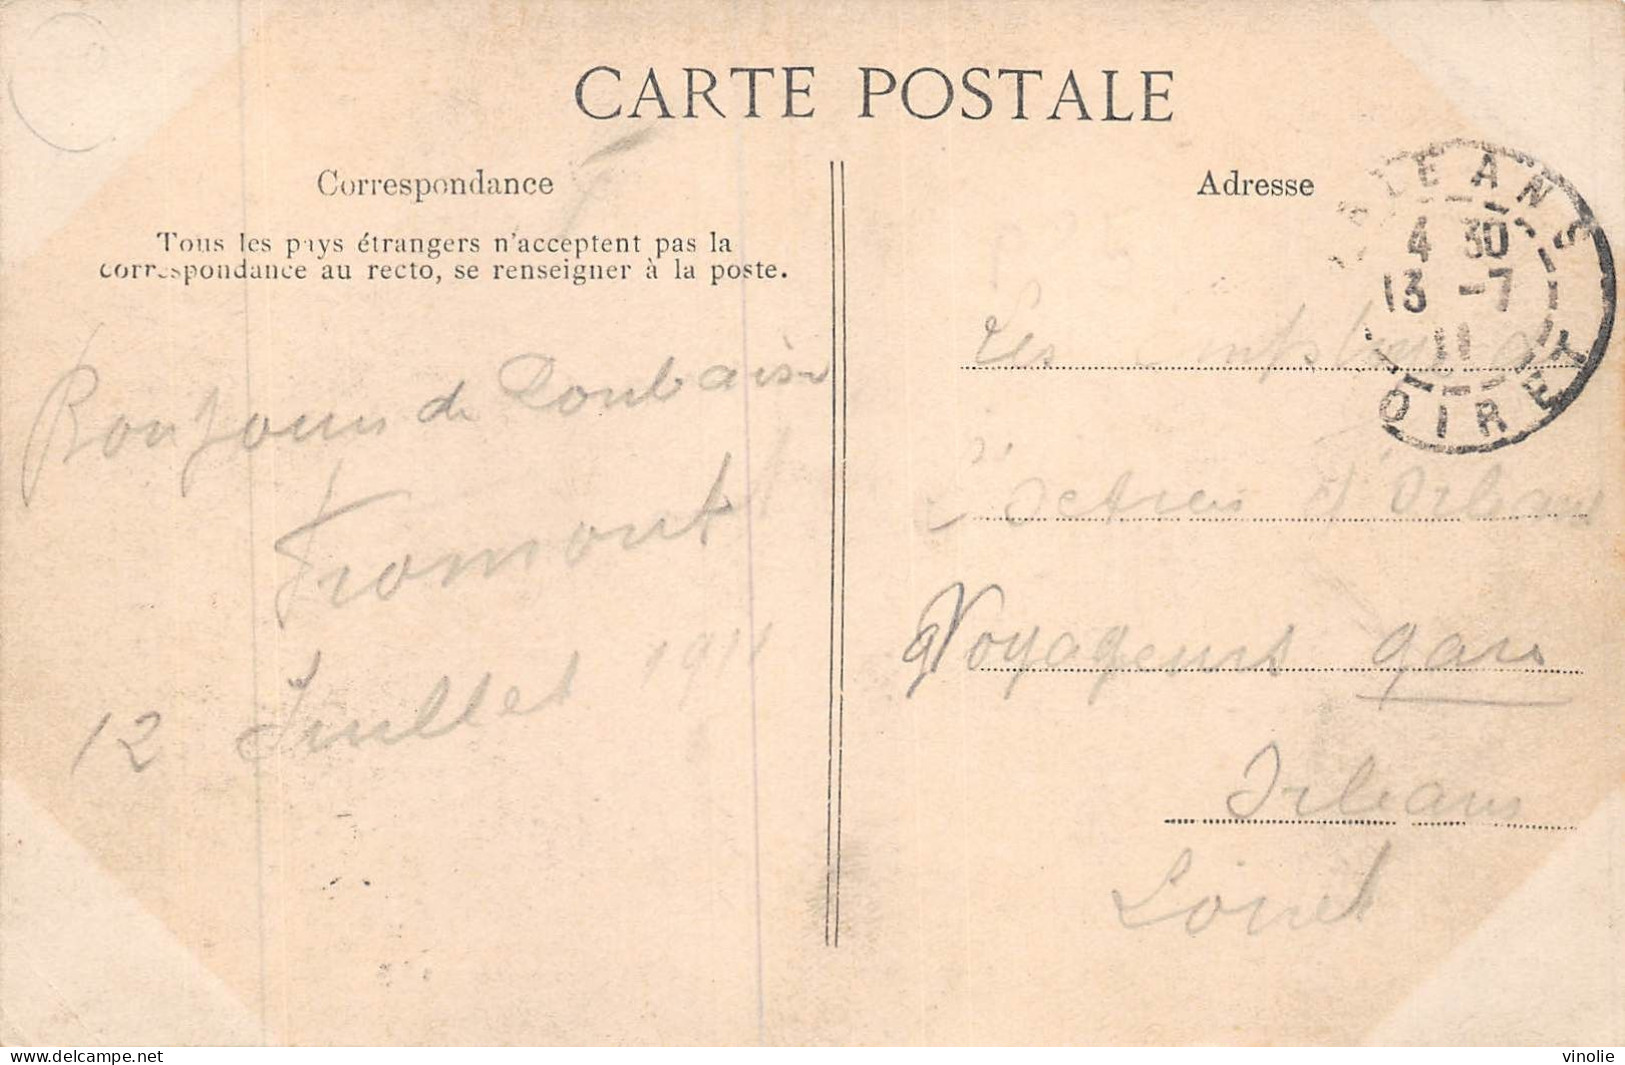 CARTE POSTALE
Correspondance
Tous les pays étrangers n'acceptent pas la
correspondance au recto, se renseigner à la poste.
Bonjour de Roubaix
Fromont
12 Juillet 1911
Adresse
ORLEANS
4 30
13 -7
11
LOIRET
Les
d'Orleans
Voyageurs gare
Orleans
Loiret
delcampe.net
vinolie